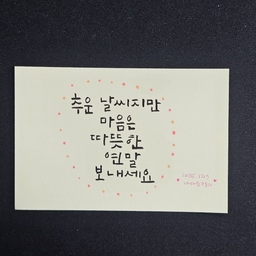 추운 날씨지만
마음은
따뜻한
연말
보내세요